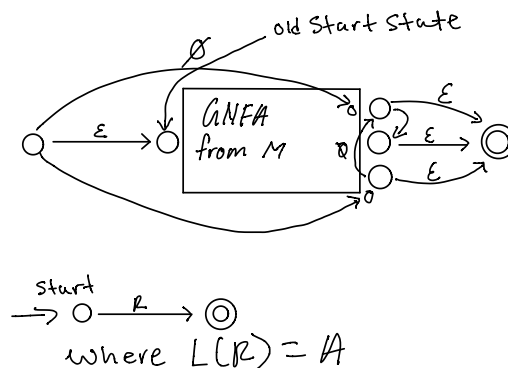 old Start State
Ø
ε
GNFA
from M
ε
ε
ε
start
R
where L(R) = A